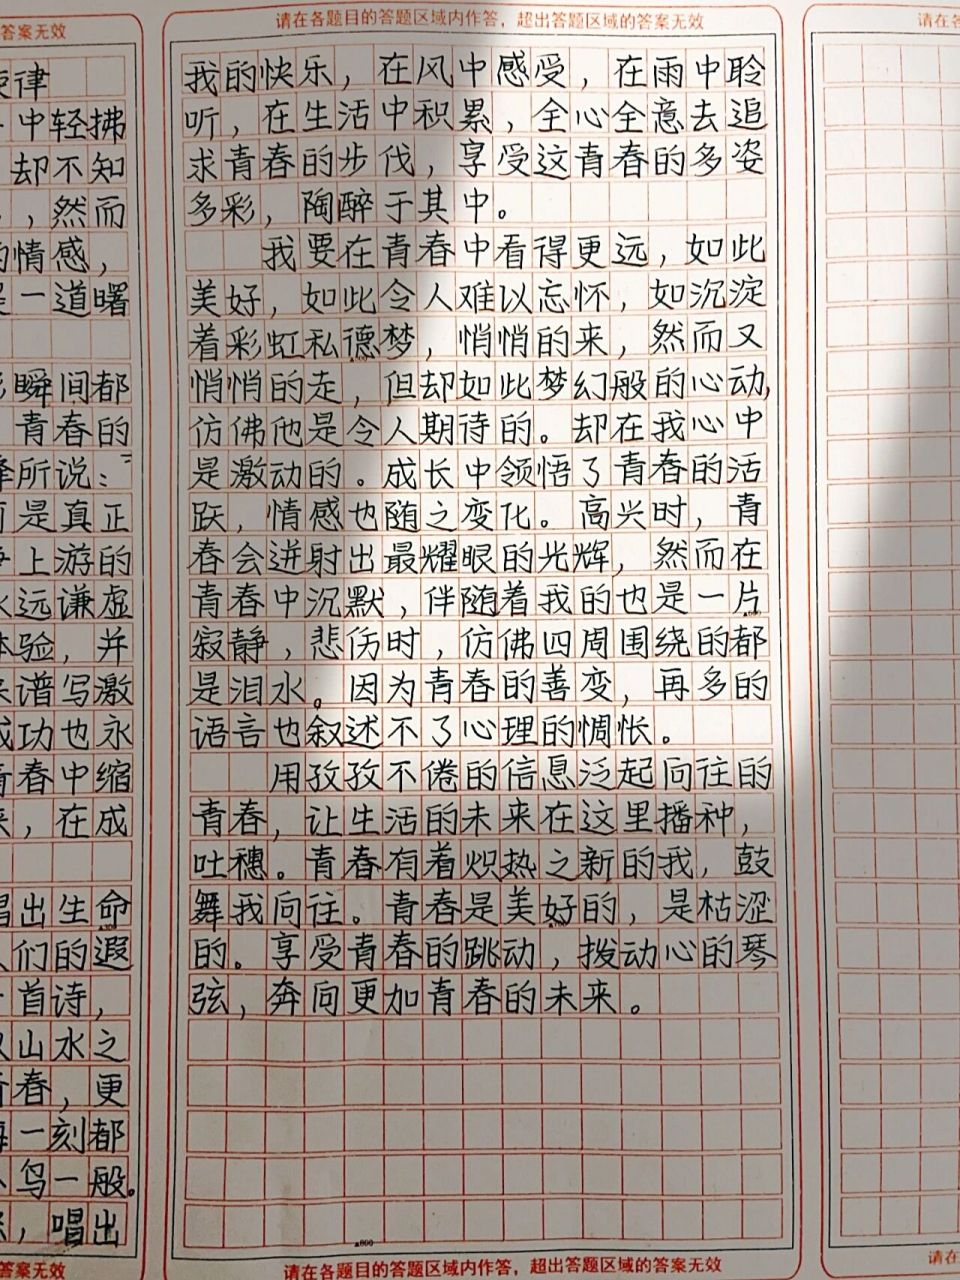 答案无效
旋律
中轻拂
却不知
，然而
的情感，
是一道曙
瞬间都
青春的
所说：“
而是真正
争上游的
永远谦虚
体验，并
来谱写激
成功也永
青春中缩
，在成
唱出生命
人们的遐
一首诗，
以山水之
青春，更
每一刻都
小鸟一般。
，唱出
答案无效
请在各题目的答题区域内作答，超出答题区域的答案无效
我的快乐，在风中感受，在雨中聆
听，在生活中积累，全心全意去追
求青春的步伐，享受这青春的多姿
多彩，陶醉于其中。
我要在青春中看得更远，如此
美好，如此令人难以忘怀，如沉淀
着彩虹私德梦，悄悄的来，然而又
悄悄的走，但却如此梦幻般的心动，
仿佛他是令人期待的。却在我心中
是激动的。成长中领悟了青春的活
跃，情感也随之变化。高兴时，青
春会迸射出最耀眼的光辉，然而在
青春中沉默，伴随着我的也是一片
寂静，悲伤时，仿佛四周围绕的都
是泪水。因为青春的善变，再多的
语言也叙述不了心理的惆怅。
用孜孜不倦的信息泛起向往的
青春，让生活的未来在这里播种，
吐穗。青春有着炽热之新的我，鼓
舞我向往。青春是美好的，是枯涩
的。享受青春的跳动，拨动心的琴
弦，奔向更加青春的未来。
▲800
请在各题目的答题区域内作答，超出答题区域的答案无效
请在各
请在